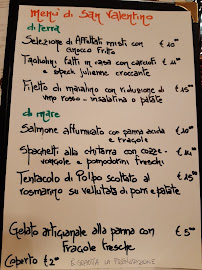 menù di San Valentino
di terra
Selezione di Affettati misti con € 10
gnocco fritto
Taglolini fatti in casa con carciofi € 11
e speck julienne croccante
Filetto di maialino con riduzione di € 15
vino rosso - insalatina o patate
di mare
Salmone affumicato con panna acida € 10
e fragole
Spaghetti alla chitarra con cozze - € 11
vongole e pomodorini freschi
Tentacolo di Polpo scottato al € 15
rosmarino su vellutata di porri e patate
Gelato artigianale alla panna con € 5
Fragole fresche
Coperto € 2 È GRADITA LA PRENOTAZIONE